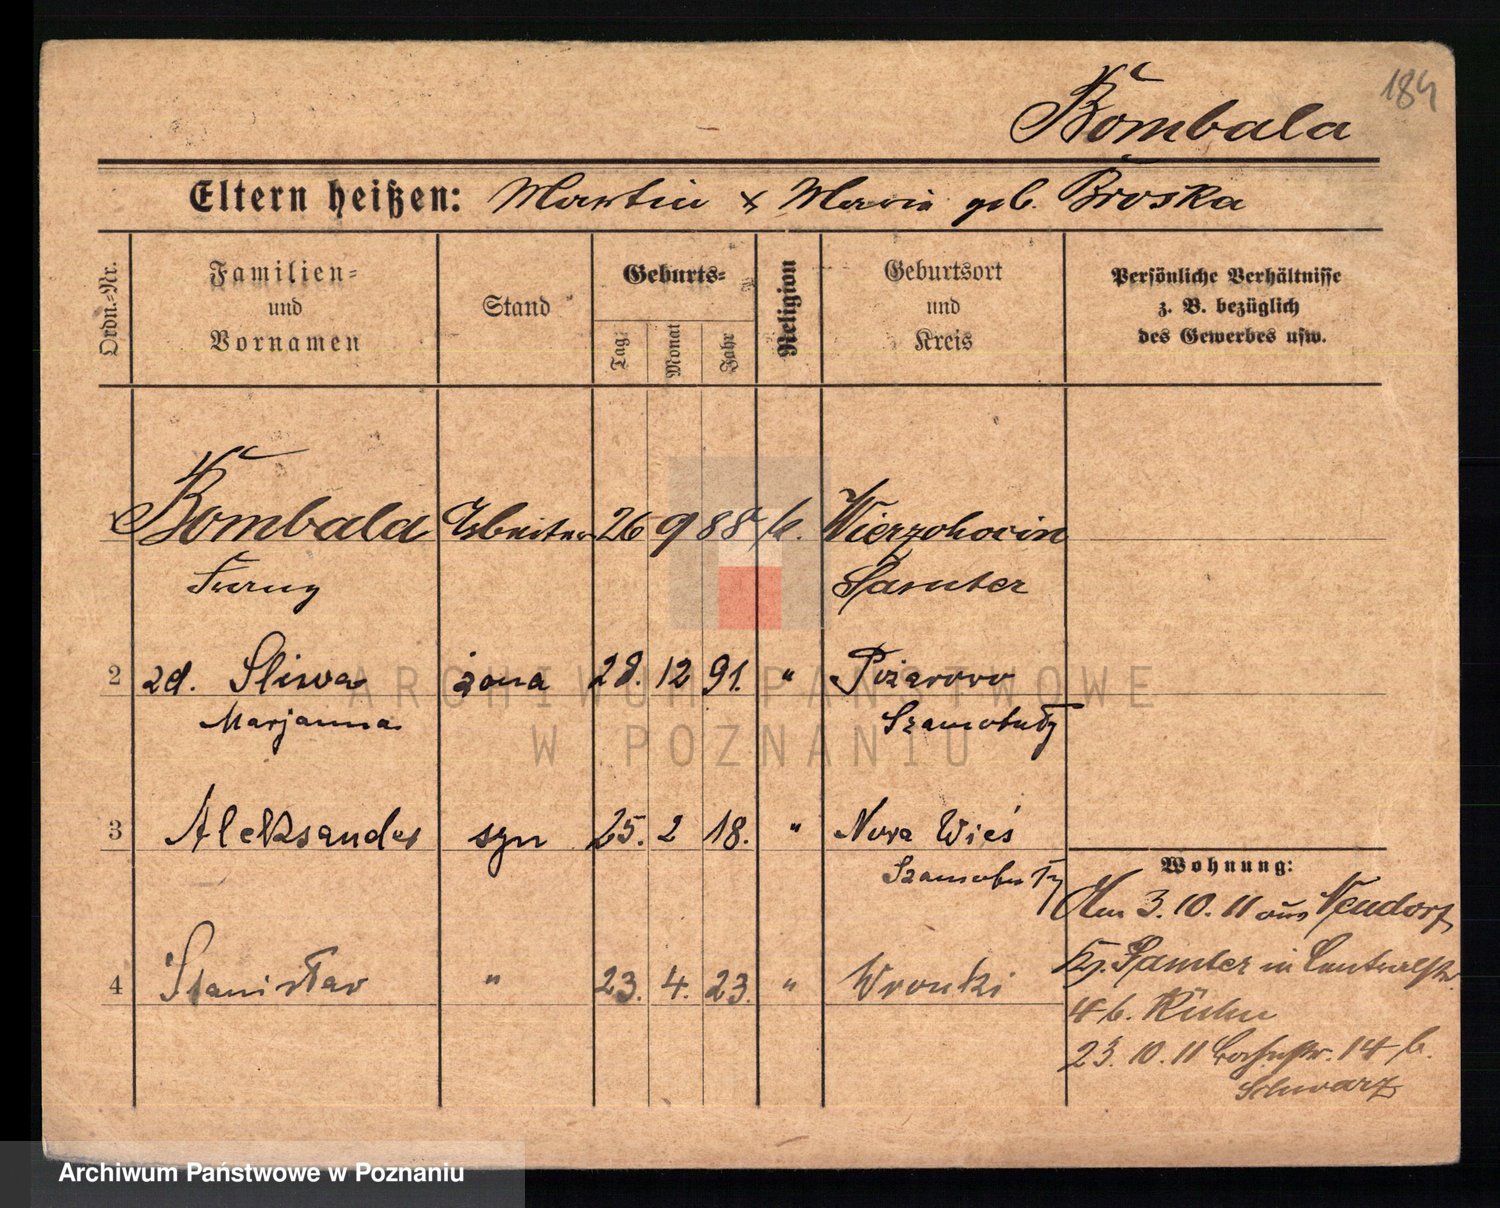 184
Bombala
Eltern heißen: Martin x Maria geb. Broska
Ordn.=Nr.
Familien=
und
Vornamen
Stand
Geburts=
Tag
Monat
Jahr
Religion
Geburtsort
und
Kreis
Persönliche Verhältnisse
z. B. bezüglich
des Gewerbes usw.
1 Bombala Arbeiter 26 9 88 k. Wierzchocin
Samter
2 zd. Sliwa żona 28. 12 91. " Pożarowo
Marjanna Szamotuły
3 Aleksander syn 25. 2 18. " Nowa Wieś
Szamotuły
Wohnung:
Am 3. 10. 11 aus Neudorf
Kr. Samter in Centralstr.
4 b. Kuhn
4 Stanisław " 23. 4. 23. " Wronki
23. 10. 11 14 b.
Schwarz
ARCHIWUM PAŃSTWOWE
W POZNANIU
Archiwum Państwowe w Poznaniu